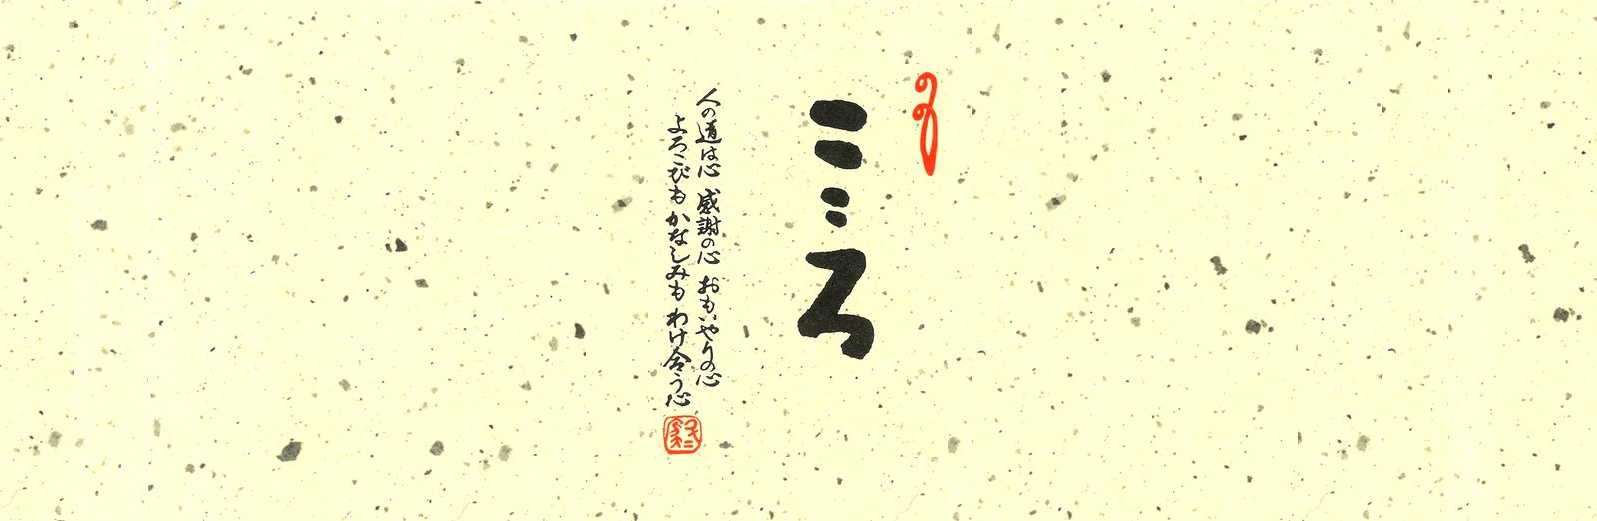 こころ
人の道は心 感謝の心 おもいやりの心
よろこびも かなしみも わけ合う心